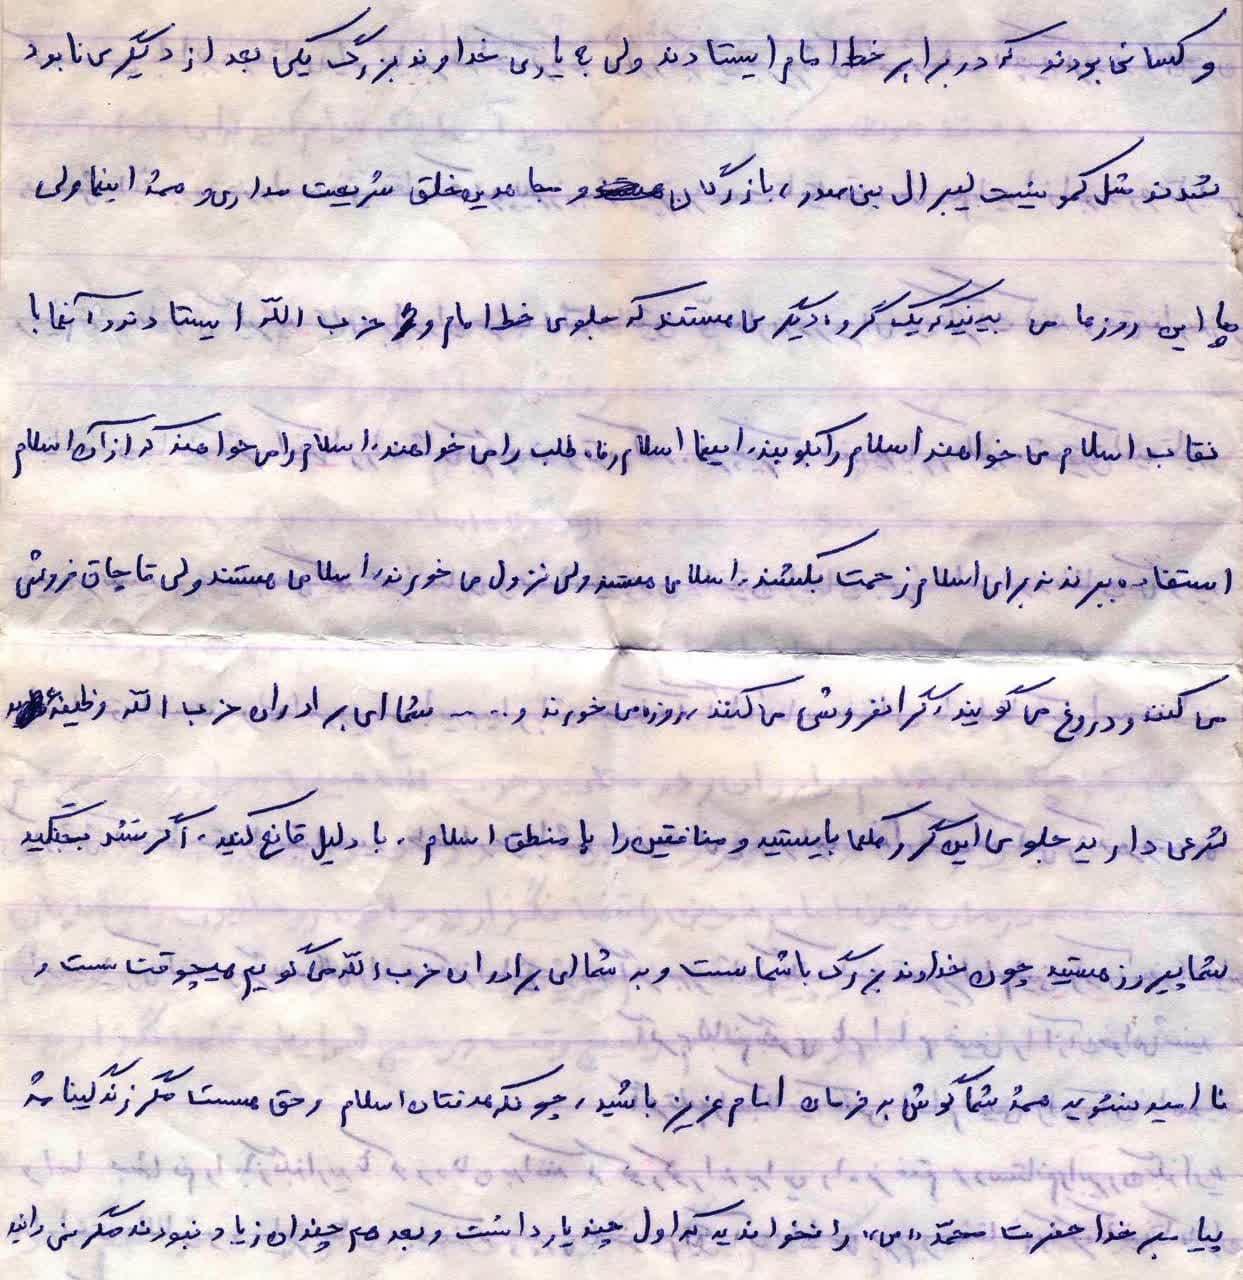 و کسانی بودند که در برابر خط امام ایستادند ولی به یاری خداوند بزرگ یکی بعد از دیگری نابود
شدند مثل کمونیست لیبرال بنی صدر، بازرگان و مجاهدین خلق شریعت مداری و همهٔ اینها ولی
ما این روزها می بینید که یک گروه دیگر می هستند که جلوی خط امام و حزب الله ایستادند و آنها با
نقاب اسلام می خواهند اسلام را بکوبند، اینها اسلام رفاه طلب را می خواهند، اسلام را می خواهند که از آن اسلام
استفاده ببرند نه برای اسلام زحمت بکشند، اسلامی هستند ولی نزول می خورند، اسلامی هستند ولی قاچاق فروشی
می کنند و دروغ می گویند، گرانفروشی می کنند، روزه می خورند و .... شما ای برادران حزب الله وظیفهٔ
شرعی دارید جلوی این گروهکها بایستید و منافقین را با منطق اسلام، با دلیل قانع کنید، اگر نشد بجنگید
شما پیروز هستید چون خداوند بزرگ با شماست و به شما ای برادران حزب الله می گویم هیچوقت سست و
نا امید نشوید همهٔ شما گوش به فرمان امام عزیز باشید، چونکه هدفتان اسلام و حق هست مگر زندگینامه
پیامبر خدا حضرت محمّد «ص» را نخواندید که اول چند یار داشت و بعد هم چندان زیاد نبودند مگر نمی دانید